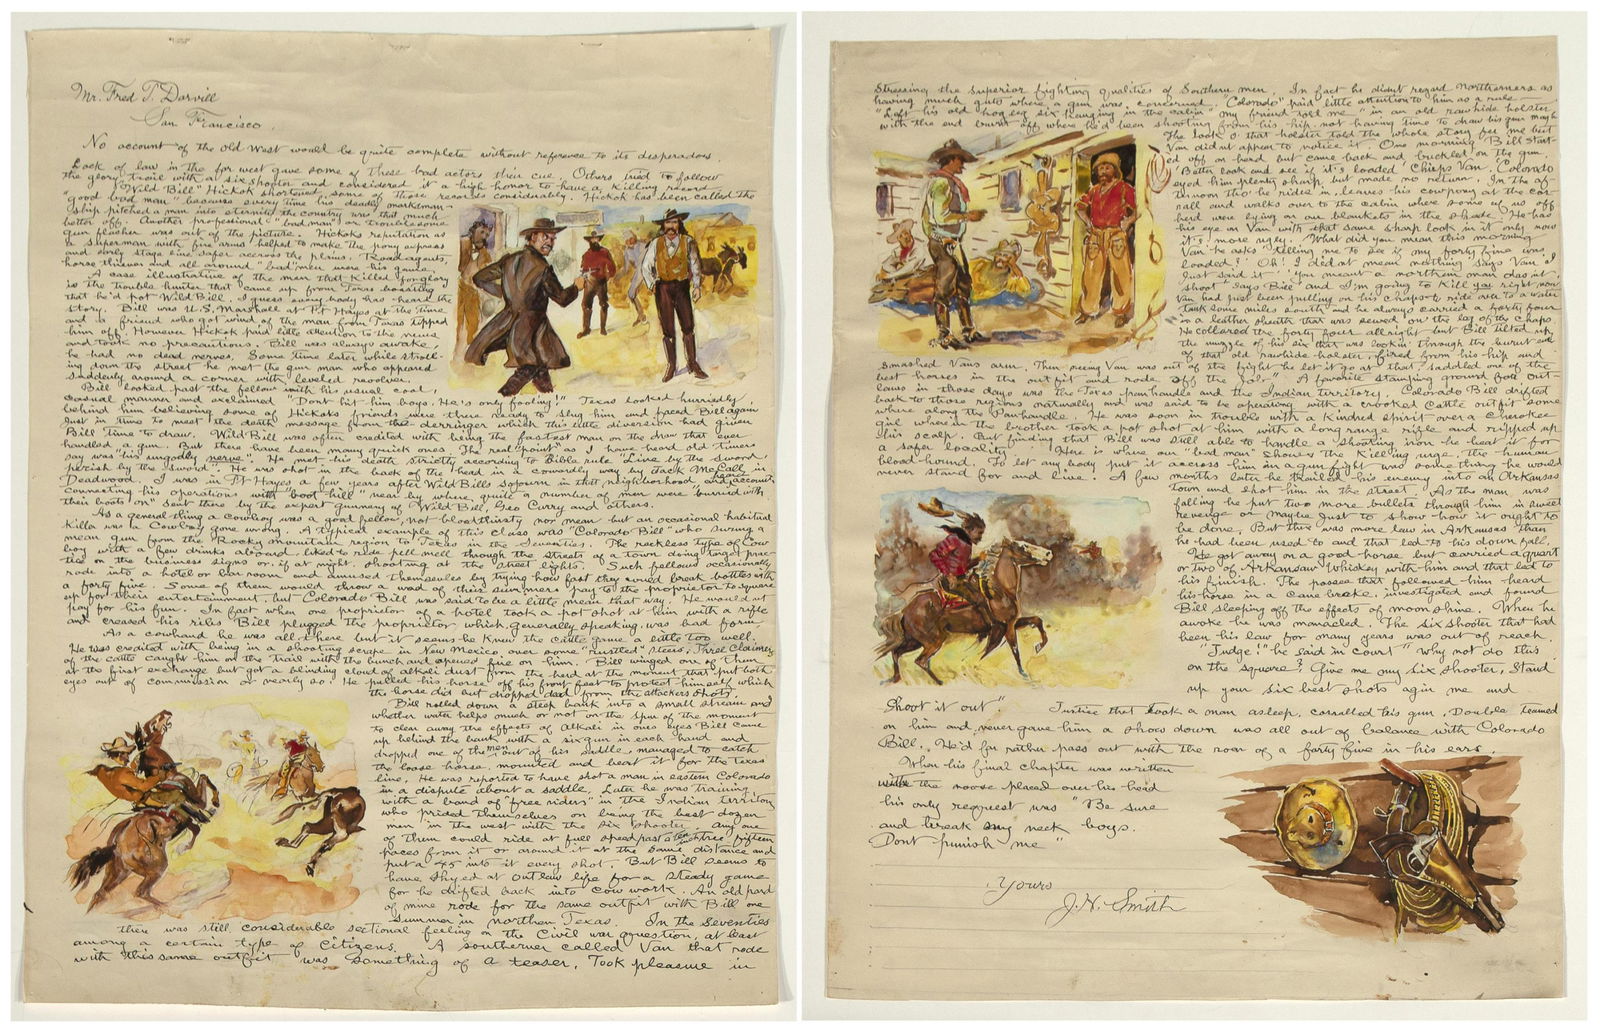 Mr. Fred T. Darvill
San Francisco.
No account of the old West would be quite complete without reference to its desperadoes.
Lack of law in the far west gave some of these bad actors their cue. Others tried to follow
the glory trail with a six shooter and considered it a high honor to have a killing record
"Wild Bill" Hickok shortened some of those records considerably. Hickok has been called the
"good bad man" because every time his deadly marksman-
ship pitched a man into eternity the country was that much
better off. Another professional "bad man" or troublesome
gun flasher was out of the picture. Hickoks reputation as
a superman with fire arms helped to make the pony express
and early stage line safer accross the plains. Road agents,
horse thieves and all around bad men were his game.
A case illustrative of the man that killed for glory
is the trouble hunter that came up from Texas boasting
that he'd pot Wild Bill. I guess every body has heard the
story. Bill was U.S. Marshall at Ft Hayes at the time
and a friend who got wind of the man from Texas tipped
him off. However Hickok paid little attention to the news
and took no precautions. Bill was always awake,
he had no dead nerves. Some time later while stroll-
ing down the street he met the gun man who appeared
suddenly around a corner with leveled revolver.
Bill looked past the fellow with his usual cool,
casual manner and exclaimed "Dont hit him boys. He's only fooling!" Texas looked hurriedly
behind him believing some of Hickoks friends were there ready to slug him and faced Bill again
just in time to meet the death message from the derringer which this little diversion had given
Bill time to draw. Wild Bill was often credited with being the fastest man on the draw that ever
handled a gun. But there have been many quick ones. The real "point" as I have heard old timers
say was "his ungodly nerve". He met his death strictly according to Bible rule "Live by the sword
perish by the sword". He was shot in the back of the head in a cowardly way by Jack McCall in
Deadwood. I was in Ft Hayes a few years after Wild Bills sojourn in that neighborhood and heard accounts
connecting his operations with "boot hill" near by where quite a number of men were burried with
their boots on" sent there by the expert gunnery of Wild Bill, Geo Curry and others.
As a general thing a cowboy was a good fellow, not bloodthirsty nor mean but an occasional habitual
killa was a Cowboy gone wrong. A typical example of this class was "Colorado Bill" who swung a
mean gun from the Rocky mountain region to Texas in the Seventies. The reckless type of Cow
boy with a few drinks aboard, liked to ride pell mell through the streets of a town doing target prac-
tice on the business signs or, if at night, shooting at the street lights. Such fellows occasionally
rode into a hotel or bar room and amused themselves by trying how fast they could break bottles with
a forty five. Some of them would throw a wad of their summers pay to the proprietor to square
up for their entertainment, but Colorado Bill was said to be a little mean that way. He would not
pay for his fun. In fact when one proprietor of a hotel took a pot shot at him with a rifle
and creased his ribs Bill plugged the proprietor which, generally speaking, was bad form.
As a cowhand he was all there but it seems he knew the cattle game a little too well.
He was credited with being in a shooting scrape in New Mexico, over some "rustled" steers. Three Claimers
of the cattle caught him on the trail with the bunch and opened fire on him. Bill winged one of them
at the first exchange but got a blinding cloud of alkali dust from the herd at the moment that put both
eyes out of commission or nearly so. He pulled his horse off his front feet to protect himself, which
the horse did but dropped dead from the attackers shots.
Bill rolled down a steep bank into a small stream and
whether water helps much or not on the spur of the moment
to clear away the effects of Alkali in ones eyes Bill came
up behind the bank with a six gun in each hand and
dropped one of the men out of his saddle, managed to catch
the loose horse, mounted and beat it for the Texas
line. He was reported to have shot a man in eastern Colorado
in a dispute about a saddle. Later he was training
with a band of "free riders" in the Indian territory
who prided themselves on being the best dozen
men in the west with the six shooter. Any one
of them could ride at full speed past a ten inch tree fifteen
paces from it or around it at the same distance and
put a 45 into it every shot. But Bill seems to
have shyed at outlaw life for a steady game
for he drifted back into cow work. An old pard
of mine rode for the same outfit with Bill one
Summer in northern Texas In the Seventies
there was still considerable sectional feeling on the Civil war question, at least
among a certain type of Citizens. A southerner called Van that rode
with this same outfit was something of a teaser. Took pleasure in
Stressing the superior fighting qualities of Southern men. In fact he didnt regard northerners as
having much guts where a gun was concerned. "Colorado" paid little attention to him as a rule
"Left his old hog leg six hanging in the cabin my friend told me "in an old rawhide holster
with the end burnt off where he'd been shooting from his hip not having time to draw his gun maybe
The look o' that holster told the whole story fer me but
Van did nt appear to notice it. One morning, Bill start-
ed off on herd but came back and buckled on the gun.
"Better look and see if it's loaded" Chirps Van. Colorado
eyed him plenty sharp but made no return. In the af-
ternoon tho' he rides in, leaves his cowpony at the cor-
rall and walks over to the cabin where some of us off
herd were lying on our blankets in the shade. He has
his eye on Van with that same sharp look in it only now
it's more ugly. "What did you mean this morning
Van" he asks "telling me to see if my forty five was
loaded?" "Oh! I did nt mean nothing" says Van "I
just said it". "You meant a northern man das nt
shoot" says Bill and I'm going to kill you right now
Van had just been pulling on his chaps to ride over to a water
tank some miles south and he always carried a forty four
in a leather sheath that was sewed on the leg of the chaps.
He collared the forty four allright but Bill tilted up
the muzzle of his six that was lookin' through the burnt end
of that old rawhide holster, fired from his hip and
smashed Vans arm. Then seeing Van was out of the fight he let it go at that, saddled one of the
best horses in the outfit and rode off the job." A favorite stamping ground for out-
laws in those days was the Texas panhandle and the Indian territory. Colorado Bill drifted
back to those regions naturally and was said to be operating with a crooked cattle outfit some
where along the Panhandle. He was soon in trouble with a kindred spirit over a Cherokee
girl wherein the brother took a pot shot at him with a long range rifle and ripped up
his scalp. But finding that Bill was still able to handle a shooting iron he beat it for
a safer locality. Here is where our "bad man" shows the killing urge, the human
blood-hound. To let any body put it accross him in a gun fight was some thing he would
never stand for and live. A few months later he trailed his enemy into an Arkansas
town and shot him in the street. As the man was
falling he put two more bullets through him in sweet
revenge or maybe just to show how it ought to
be done, But there was more law in Arkansas than
he had been used to and that led to his down fall.
He got away on a good horse but carried a quart
or two of Arkansaw Whiskey with him and that led to
his finish. The possea that followed him heard
his horse in a cane brake, investigated and found
Bill sleeping off the effects of moon shine. When he
awoke he was manacled. The six shooter that had
been his law for many years was out of reach.
"Judge!" he said in court "Why not do this
on the square? Give me my six shooter, Stand
up your six best shots agin me and
Shoot it out". Justice that took a man asleep, corralled his gun, Double teamed
on him and never gave him a show down was all out of balance with Colorado
Bill. He'd far rather pass out with the roar of a forty five in his ears.
When his final chapter was written
with the noose placed over his head
his only request was "Be sure
and break my neck boys.
Dont punish me"
Yours
J. H. Smith